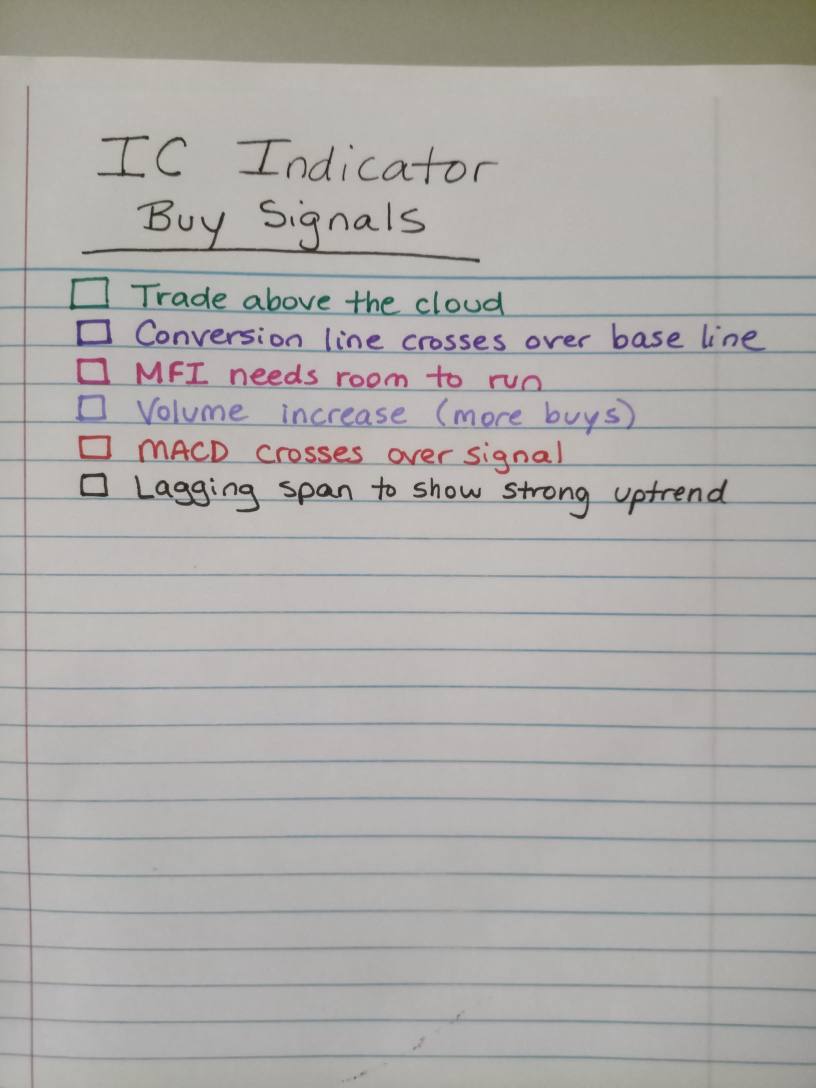 IC Indicator
Buy Signals
Trade above the cloud
Conversion line crosses over base line
MFI needs room to run
Volume increase (more buys)
MACD crosses over signal
Lagging span to show strong uptrend